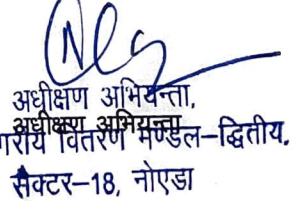 अधीक्षण अभियन्ता,
अधीक्षण अभियन्ता
गरीय वितरण मण्डल-द्वितीय,
सैक्टर-18, नोएडा